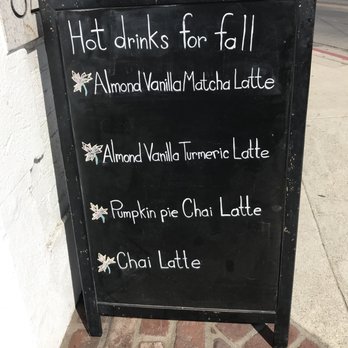 Hot drinks for fall
Almond Vanilla Matcha Latte
Almond Vanilla Turmeric Latte
Pumpkin pie Chai Latte
Chai Latte